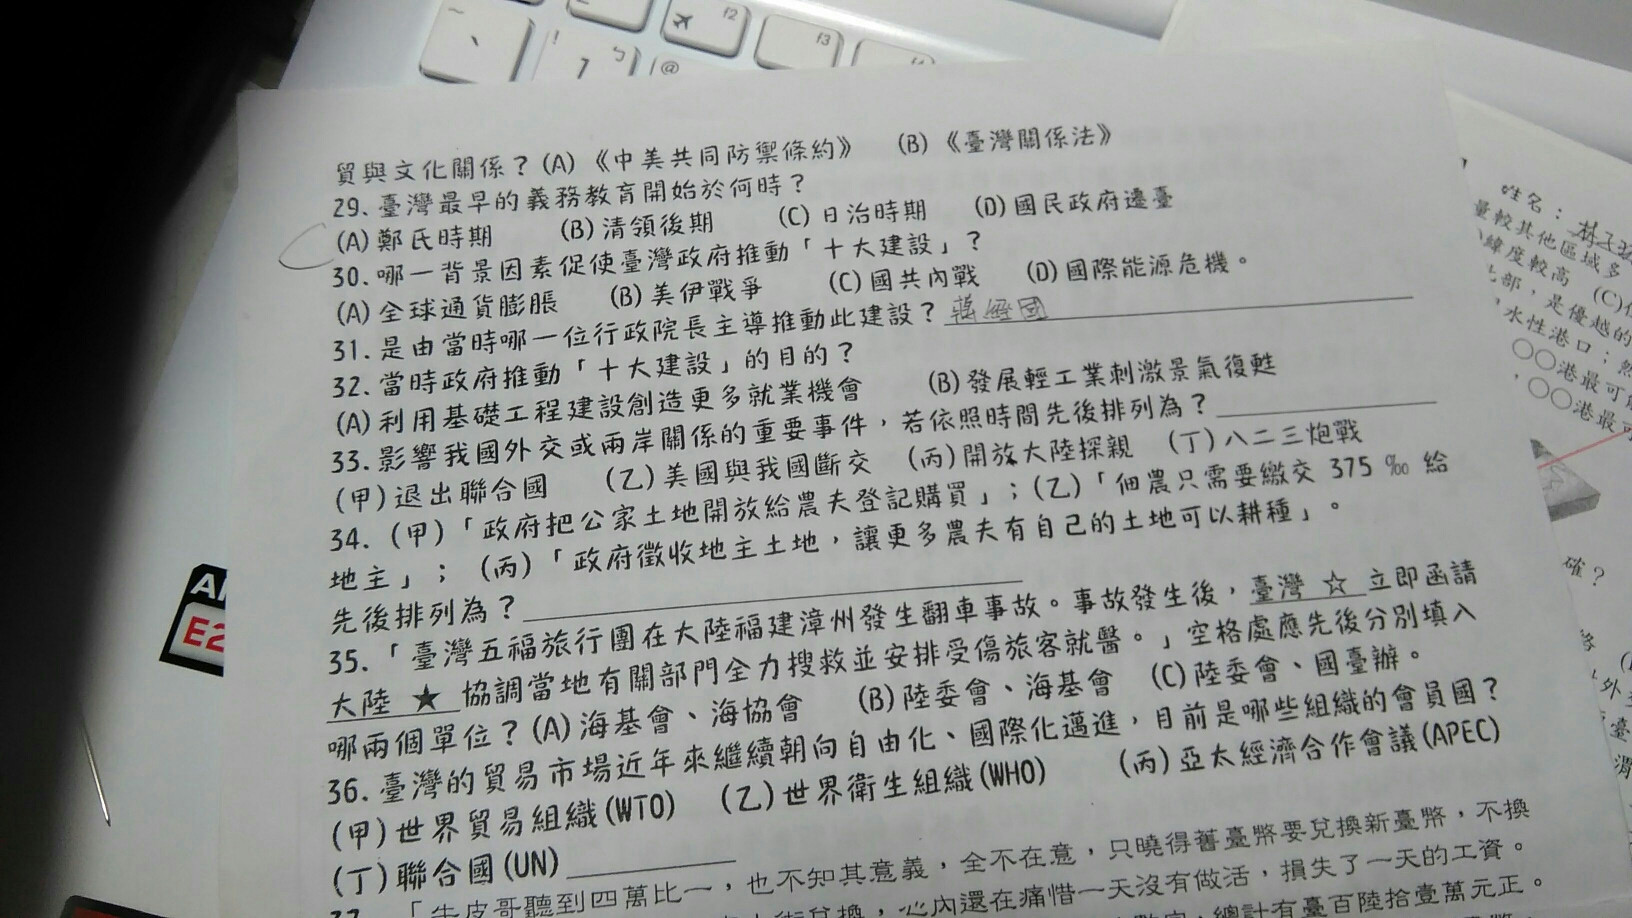 f2
f3
貿與文化關係？(A)《中美共同防禦條約》 (B)《臺灣關係法》
29.臺灣最早的義務教育開始於何時？
(A)鄭氏時期 (B)清領後期 (C)日治時期 (D)國民政府遷臺
30.哪一背景因素促使臺灣政府推動「十大建設」？
(A)全球通貨膨脹 (B)美伊戰爭 (C)國共內戰 (D)國際能源危機。
31.是由當時哪一位行政院長主導推動此建設？蔣經國
32.當時政府推動「十大建設」的目的？
(A)利用基礎工程建設創造更多就業機會 (B)發展輕工業刺激景氣復甦
33.影響我國外交或兩岸關係的重要事件，若依照時間先後排列為？
(甲)退出聯合國 (乙)美國與我國斷交 (丙)開放大陸探親 (丁)八二三炮戰
34.(甲)「政府把公家土地開放給農夫登記購買」；(乙)「佃農只需要繳交 375 ‰ 給
地主」； (丙)「政府徵收地主土地，讓更多農夫有自己的土地可以耕種」。
先後排列為？
35.「臺灣五福旅行團在大陸福建漳州發生翻車事故。事故發生後，臺灣 ☆ 立即函請
大陸 ★ 協調當地有關部門全力搜救並安排受傷旅客就醫。」空格處應先後分別填入
哪兩個單位？(A)海基會、海協會 (B)陸委會、海基會 (C)陸委會、國臺辦。
36.臺灣的貿易市場近年來繼續朝向自由化、國際化邁進，目前是哪些組織的會員國？
(甲)世界貿易組織(WTO) (乙)世界衛生組織(WHO) (丙)亞太經濟合作會議(APEC)
(丁)聯合國(UN)
37.「牛皮哥聽到四萬比一，也不知其意義，全不在意，只曉得舊臺幣要兌換新臺幣，不換
兌換，心內還在痛惜一天沒有做活，損失了一天的工資。
總計有臺百陸拾壹萬元正。
姓名：
量較其他區域多
緯度較高 (C)
部，是優越的
水性港口；然
○○港最可能
，○○港最可
確？
E2